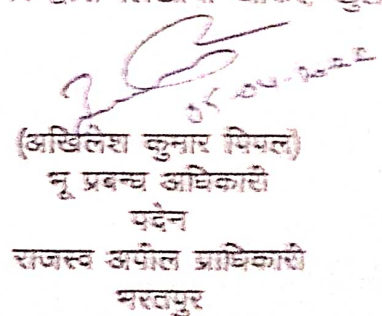 (अखिलेश कुमार पिपल)
भू प्रबन्ध अधिकारी
पदेन
राजस्व अपील प्राधिकारी
भरतपुर